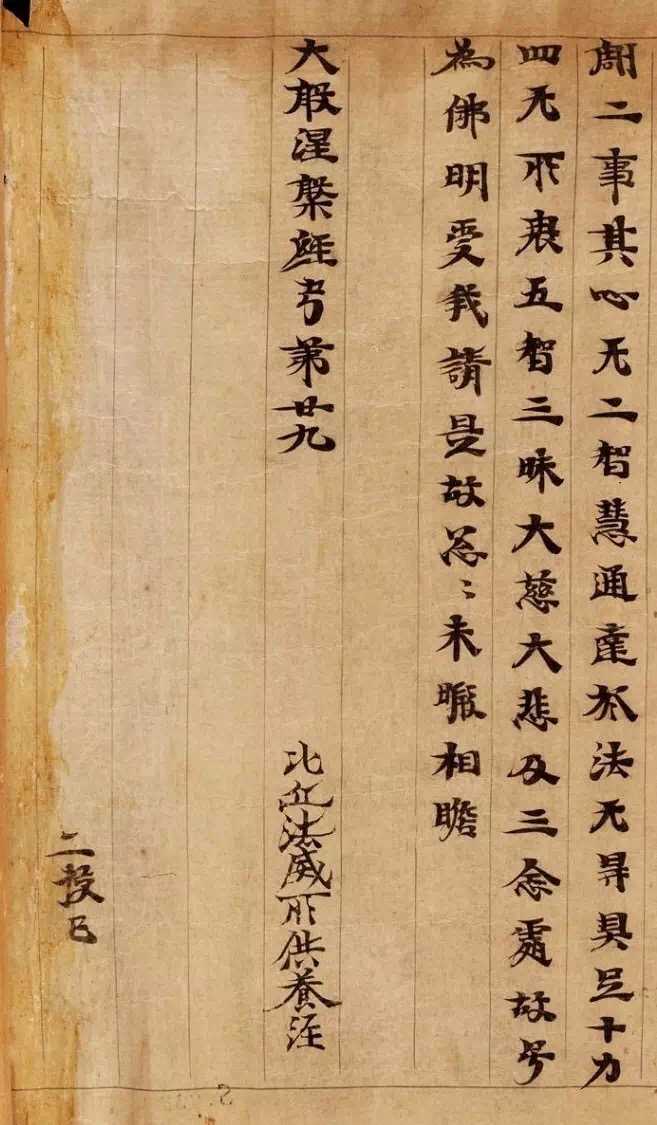 聞二事其心无二智慧通達於法无㝵具足十力
四无所畏五智三昧大慈大悲及三念處故号
為佛明受我請是故忩〻未暇相瞻
大般涅槃經卷第廿九
比丘法威所供養經
二校已